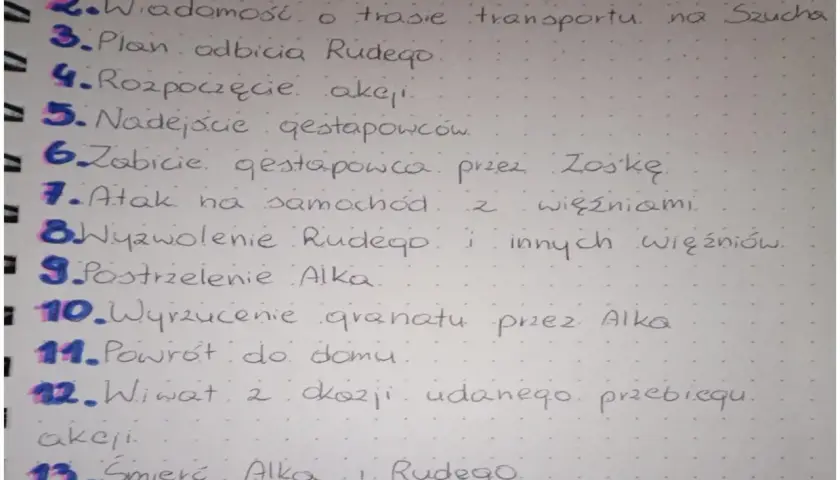 2. Wiadomość o trasie transportu na Szucha
3. Plan odbicia Rudego
4. Rozpoczęcie akcji
5. Nadejście gestapowców
6. Zabicie gestapowca przez Zośkę
7. Atak na samochód z więźniami
8. Wyzwolenie Rudego i innych więźniów.
9. Postrzelenie Alka
10. Wyrzucenie granatu przez Alka
11. Powrót do domu.
12. Wiwat z okazji udanego przebiegu
akcji.
13. Śmierć Alka i Rudego